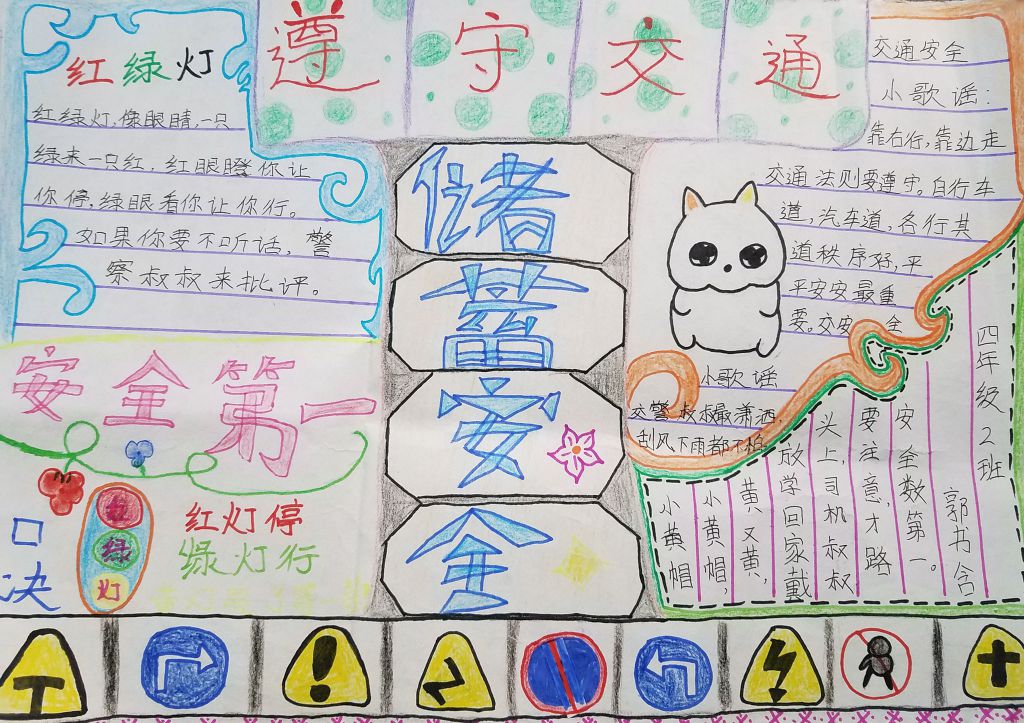 遵守交通
储蓄安全
红绿灯
红绿灯,像眼睛,一只
绿来一只红,红眼瞪你让
你停,绿眼看你让你行。
如果你要不听话,警
察叔叔来批评。
安全第一
口决
红
绿
灯
红灯停
绿灯行
交通安全
小歌谣:
靠右行,靠边走
交通法则要遵守。自行车
道,汽车道,各行其
道秩序好,平
平安安最重
要。交安 全
小歌谣
交警叔叔最潇洒,
刮风下雨都不怕
小黄帽
小黄帽,
黄又黄,
放学回家戴
头上,司机叔叔
要注意,才路
安全数第。
郭书含
四年级2班